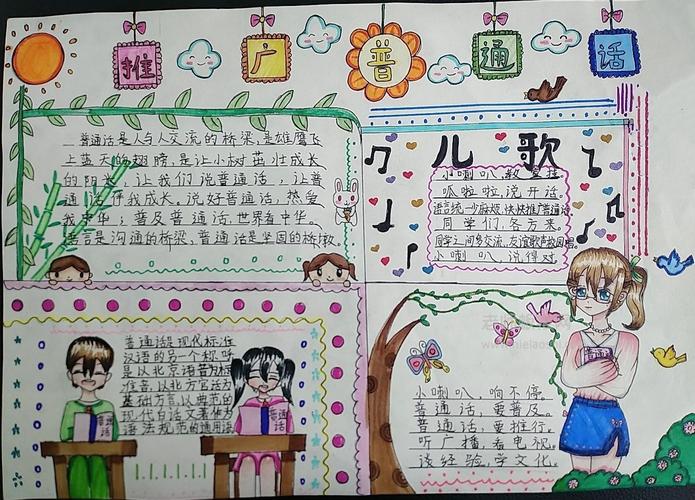 推广普通话
普通话是人与人交流的桥梁,是雄鹰飞
上蓝天的翅膀,是让小树茁壮成长
的阳光;让我们说普通话,让普
通话伴我成长。说好普通话,热爱
我中华;普及普通话,世界看中华。
语言是沟通的桥梁,普通话是坚固的桥
儿歌
小喇叭,教室挂
呱啦啦,说开话
语言统一少麻烦,快快推广普通话
同学们,各方来
同学之间多交流,友谊歌声
小喇叭,说得对
普通话是现代标准
汉语的另一个称呼
是以北京语音为标
准音,以北方官话为
基础方言,以典范的
现代白话文著作为
语法规范的通用语
普通话
普通话
小喇叭,响不停。
普通话,要普及。
普通话,要推行。
听广播,看电视。
谈经验,学文化。